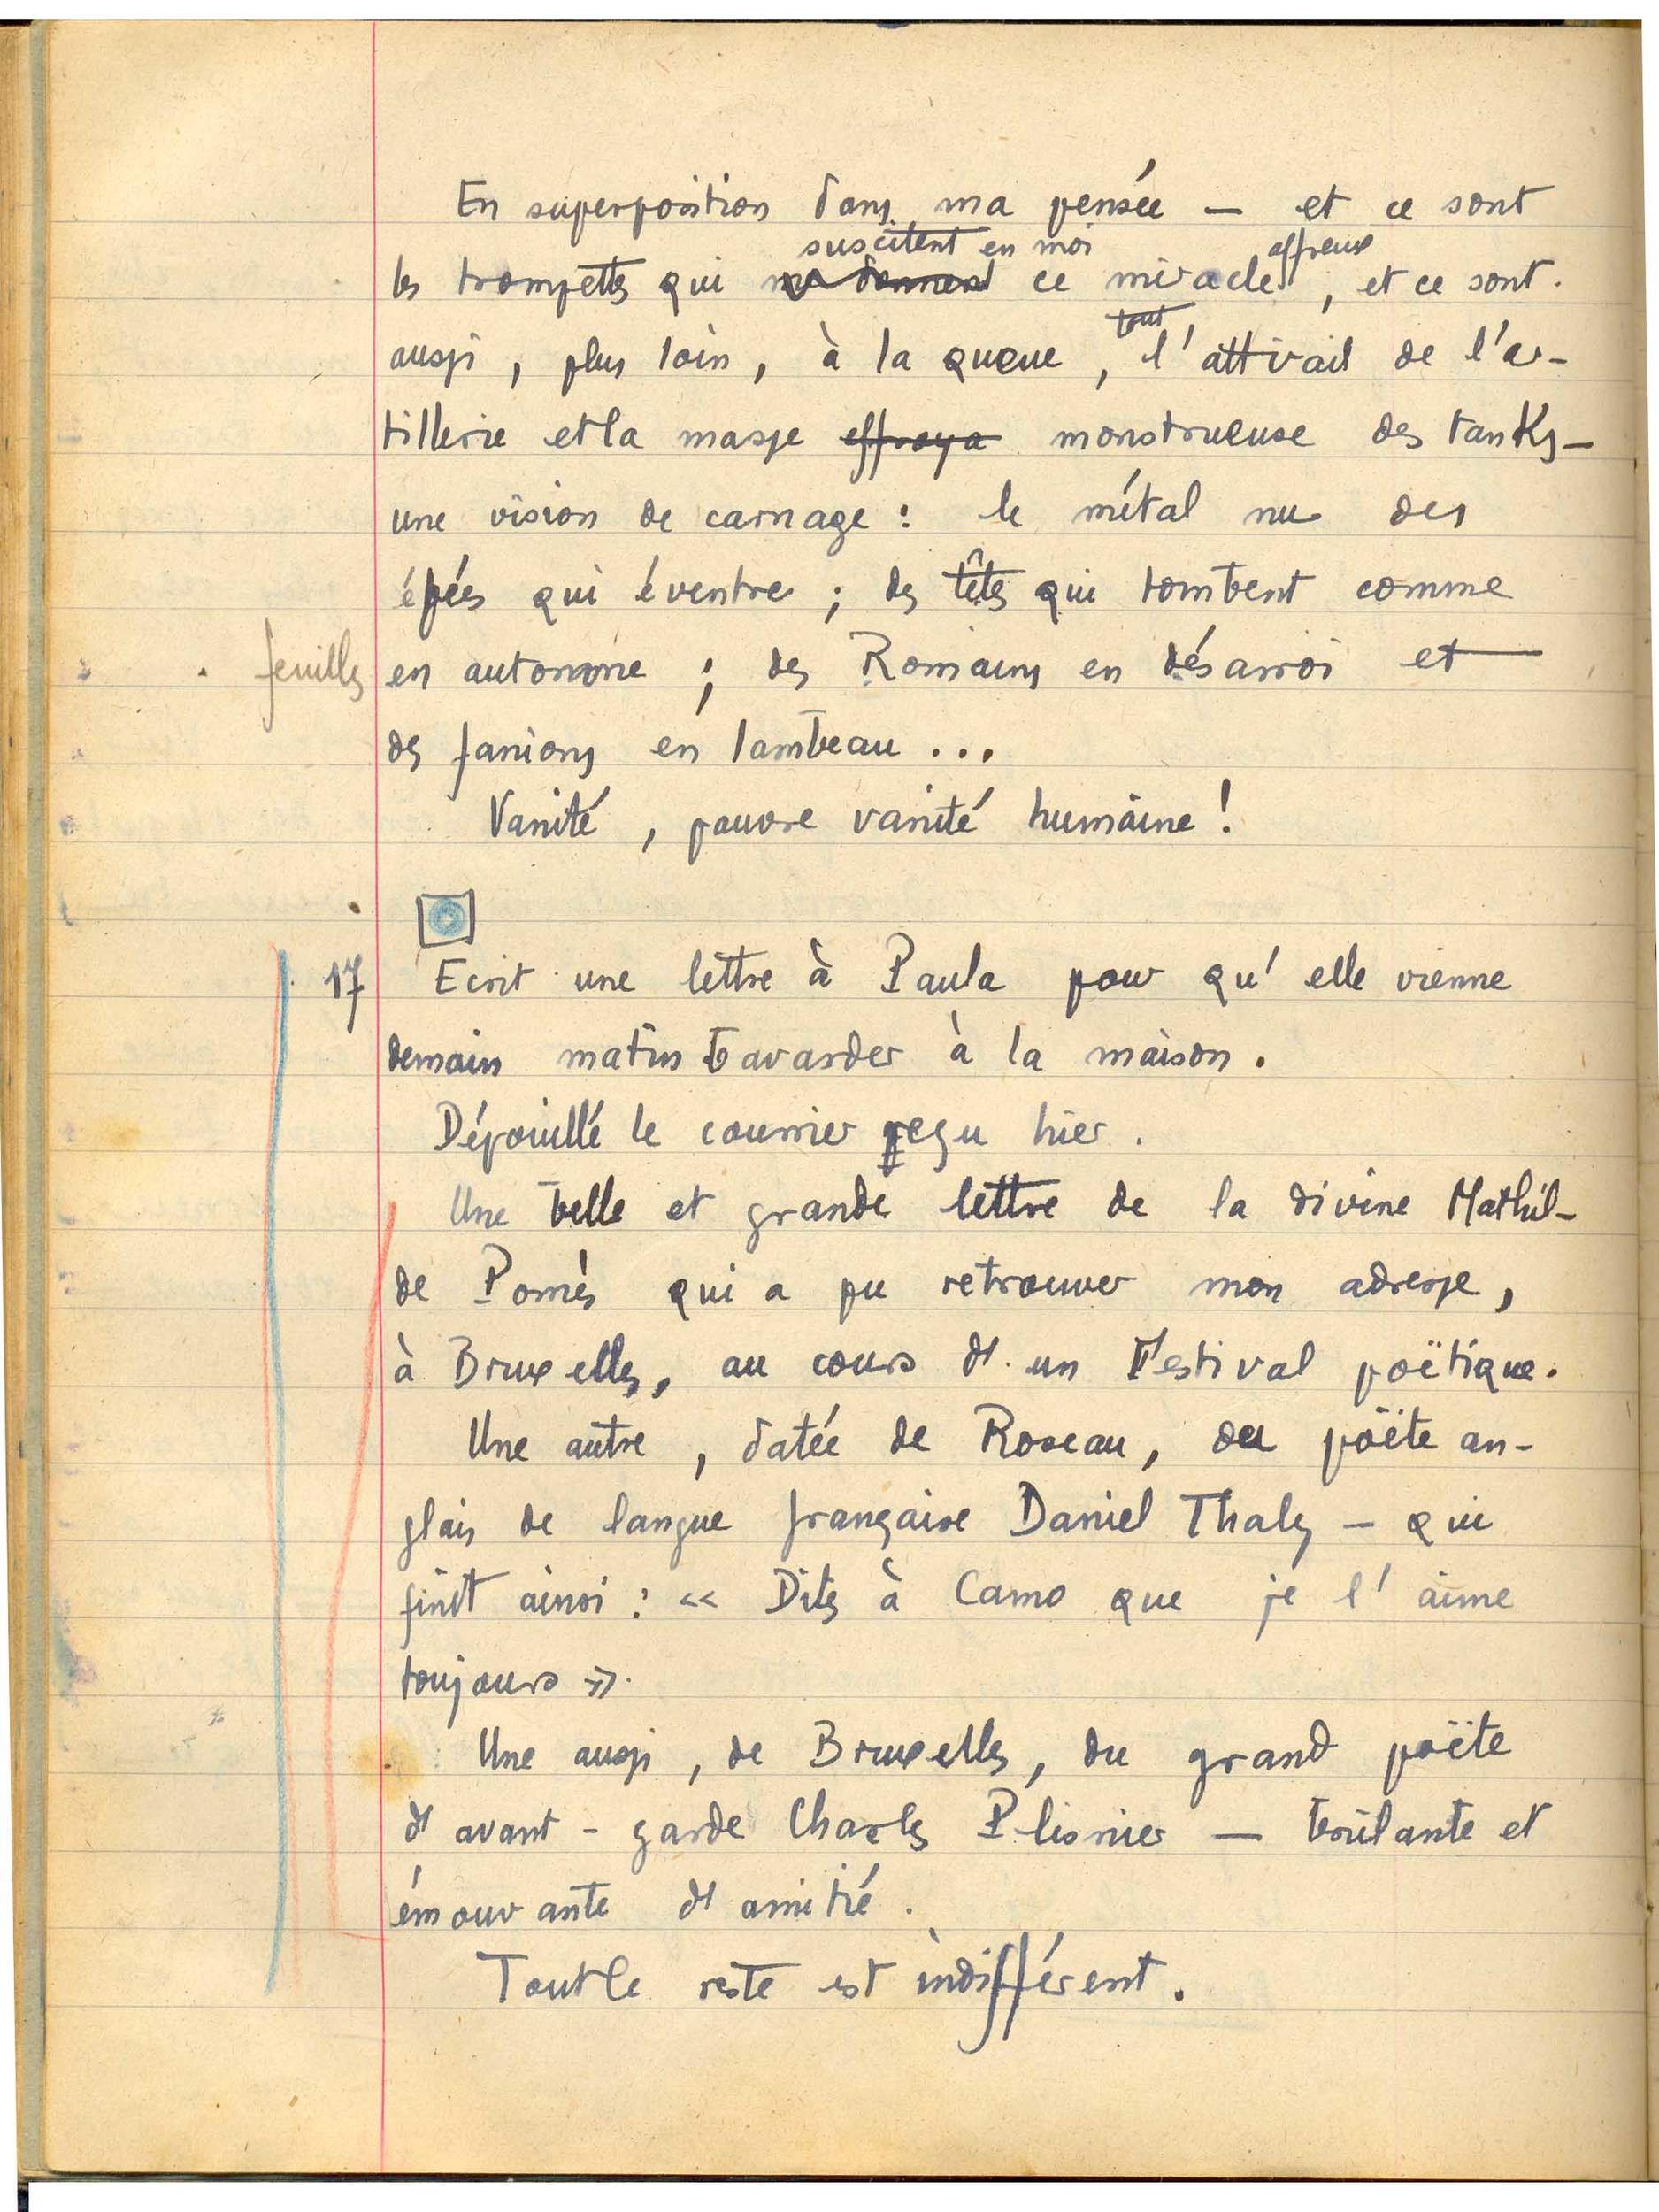 En superposition dans ma pensée — et ce sont
suscitent en moi affreux
les trompettes qui me donnent ce miracle, et ce sont
tout
aussi, plus loin, à la queue, l'attirail de l'ar-
tillerie et la masse effroya monstrueuse des tanks —
une vision de carnage : le métal nu des
épées qui éventre ; des têtes qui tombent comme
feuilles en automne ; des Romains en désarroi et
des fanions en lambeau ...
Vanité, pauvre vanité humaine !
17 Ecrit une lettre à Paula pour qu'elle vienne
demain matin bavarder à la maison.
Dépouillé le courrier reçu hier.
Une belle et grande lettre de la divine Mathil-
de Pomès qui a pu retrouver mon adresse,
à Bruxelles, au cours d'un Festival poëtique.
Une autre, datée de Roseau, du poëte an-
glais de langue française Daniel Thaly — qui
finit ainsi : « Dites à Camo que je l'aime
toujours ».
Une aussi, de Bruxelles, du grand poëte
d'avant-garde Charles Plisnier — brûlante et
émouvante d'amitié.
Tout le reste est indifférent.